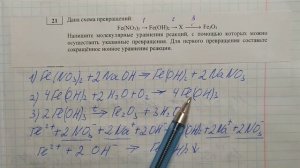 21
Дана схема превращений:
Fe(NO₃)₂ → Fe(OH)₂ → X → Fe₂O₃
Напишите молекулярные уравнения реакций, с помощью которых можно
осуществить указанные превращения. Для первого превращения составьте
сокращённое ионное уравнение реакции.
1) Fe(NO₃)₂ + 2NaOH → Fe(OH)₂ + 2NaNO₃
2) 4Fe(OH)₂ + 2H₂O + O₂ → 4Fe(OH)₃
3) 2Fe(OH)₃ → Fe₂O₃ + 3H₂O
Fe²⁺ + 2NO₃⁻ + 2Na⁺ + 2OH⁻ 2Na⁺ + 2NO₃⁻
Fe²⁺ + 2OH⁻ →